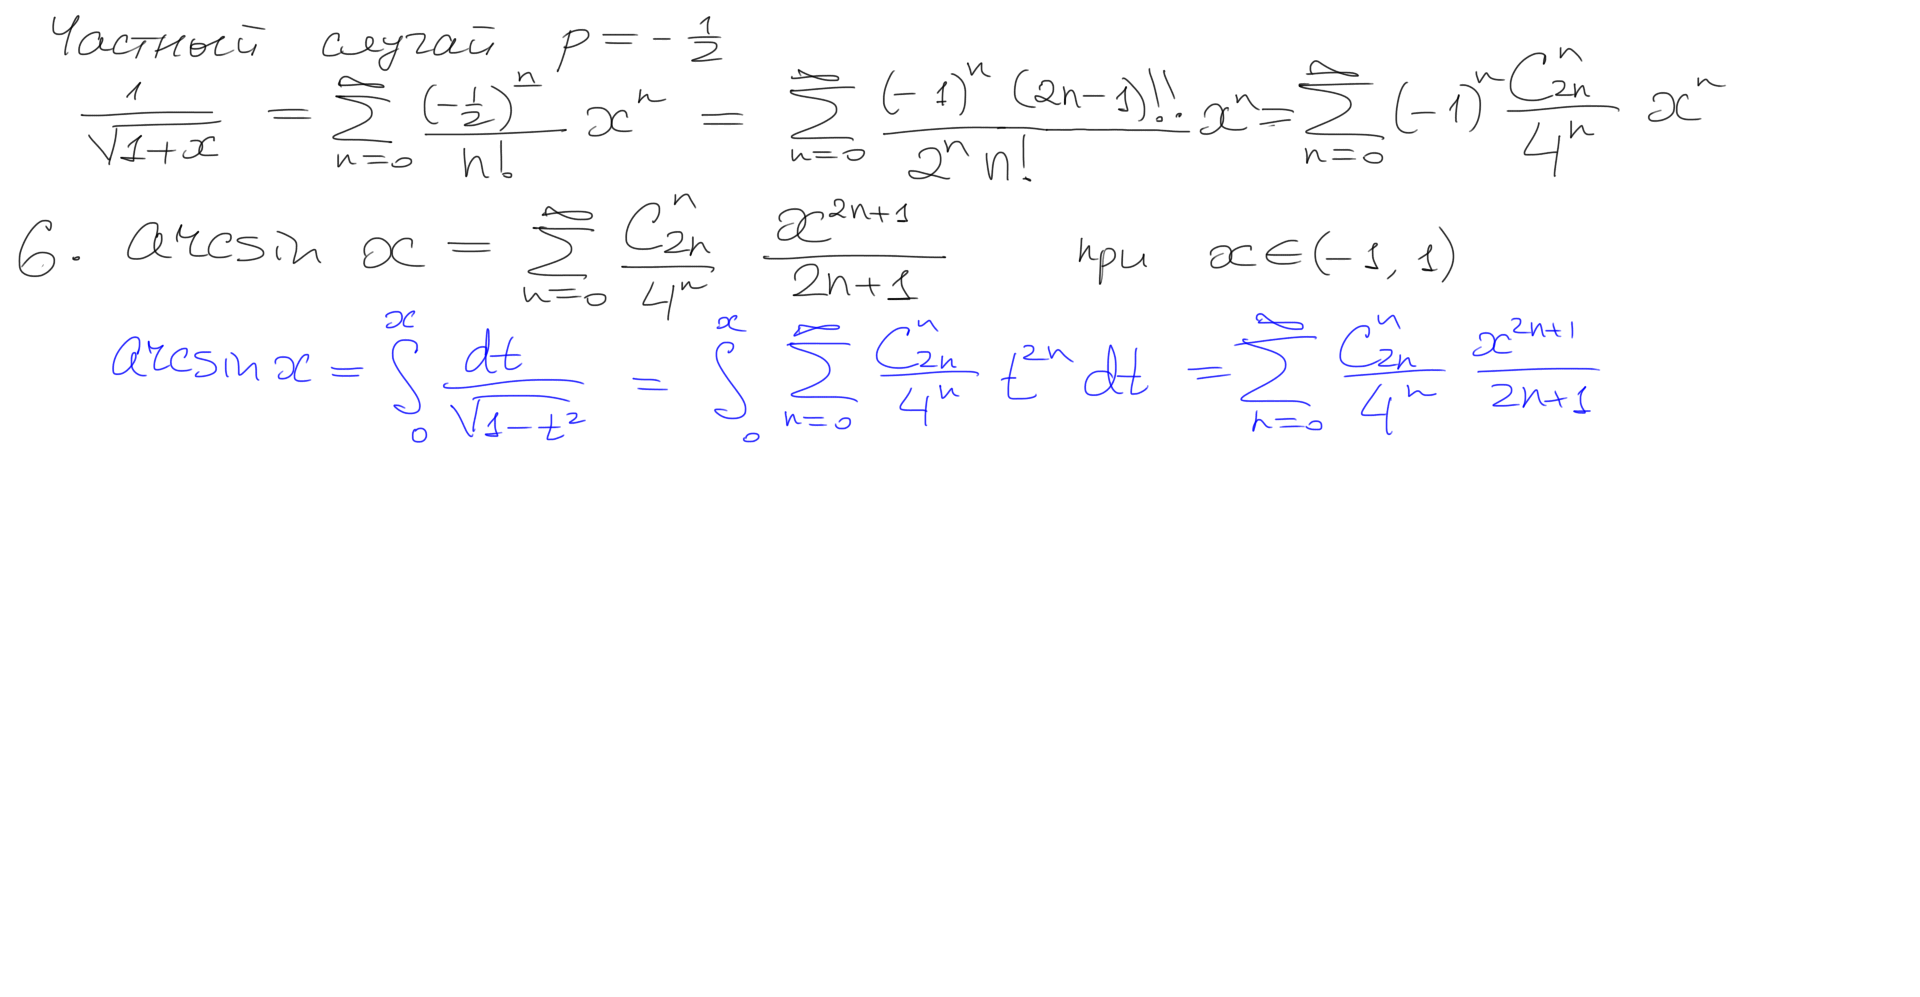 Частный случай p = - 1/2
1/√(1+x) = ∑_{n=0}^{∞} (-1/2)^{\underline{n}}/n! x^n = ∑_{n=0}^{∞} (-1)^n (2n-1)!!/(2^n n!) x^n = ∑_{n=0}^{∞} (-1)^n C_{2n}^n/4^n x^n
6. arcsin x = ∑_{n=0}^{∞} C_{2n}^n/4^n x^{2n+1}/(2n+1) при x ∈ (-1, 1)
arcsin x = ∫_0^x dt/√(1-t²) = ∫_0^x ∑_{n=0}^{∞} C_{2n}^n/4^n t^{2n} dt = ∑_{n=0}^{∞} C_{2n}^n/4^n x^{2n+1}/(2n+1)